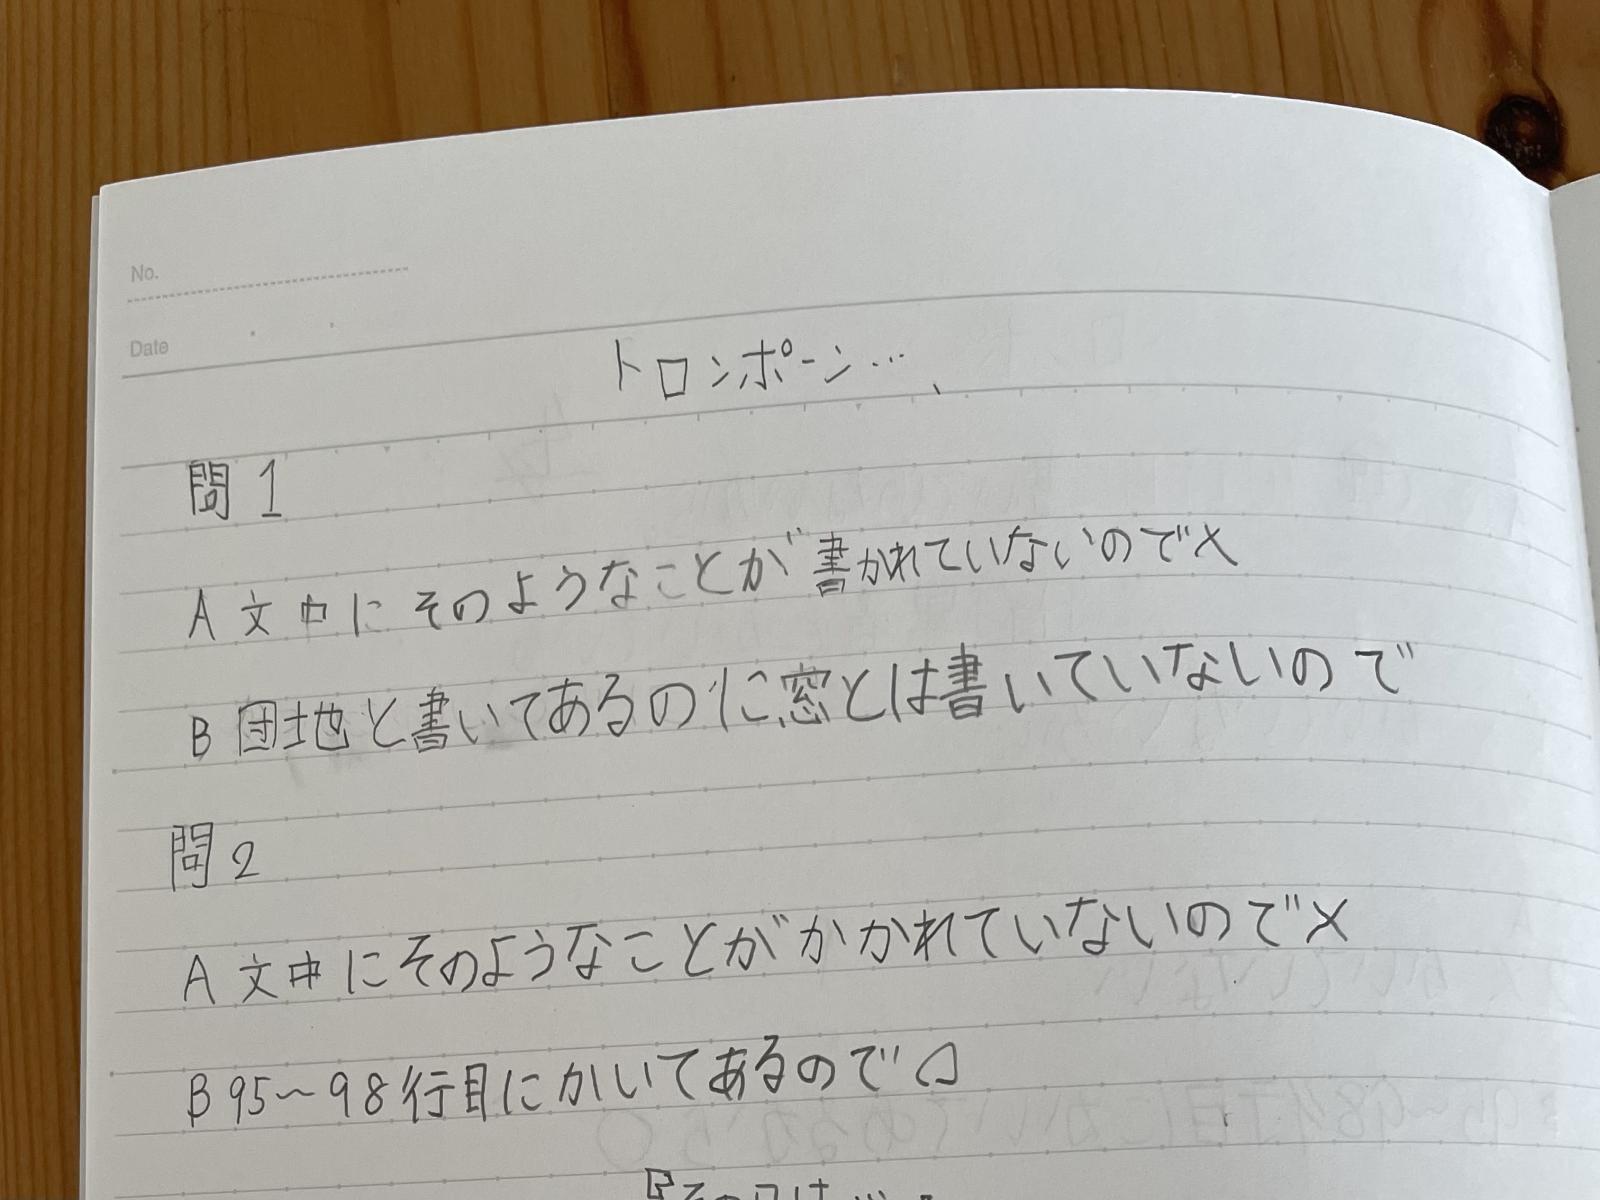 No.
Date
トロンポーン…
問1
A 文中にそのようなことが書かれていないので×
B 団地と書いてあるのに窓とは書いていないので
問2
A 文中にそのようなことがかかれていないので×
B 95〜98行目にかいてあるので○